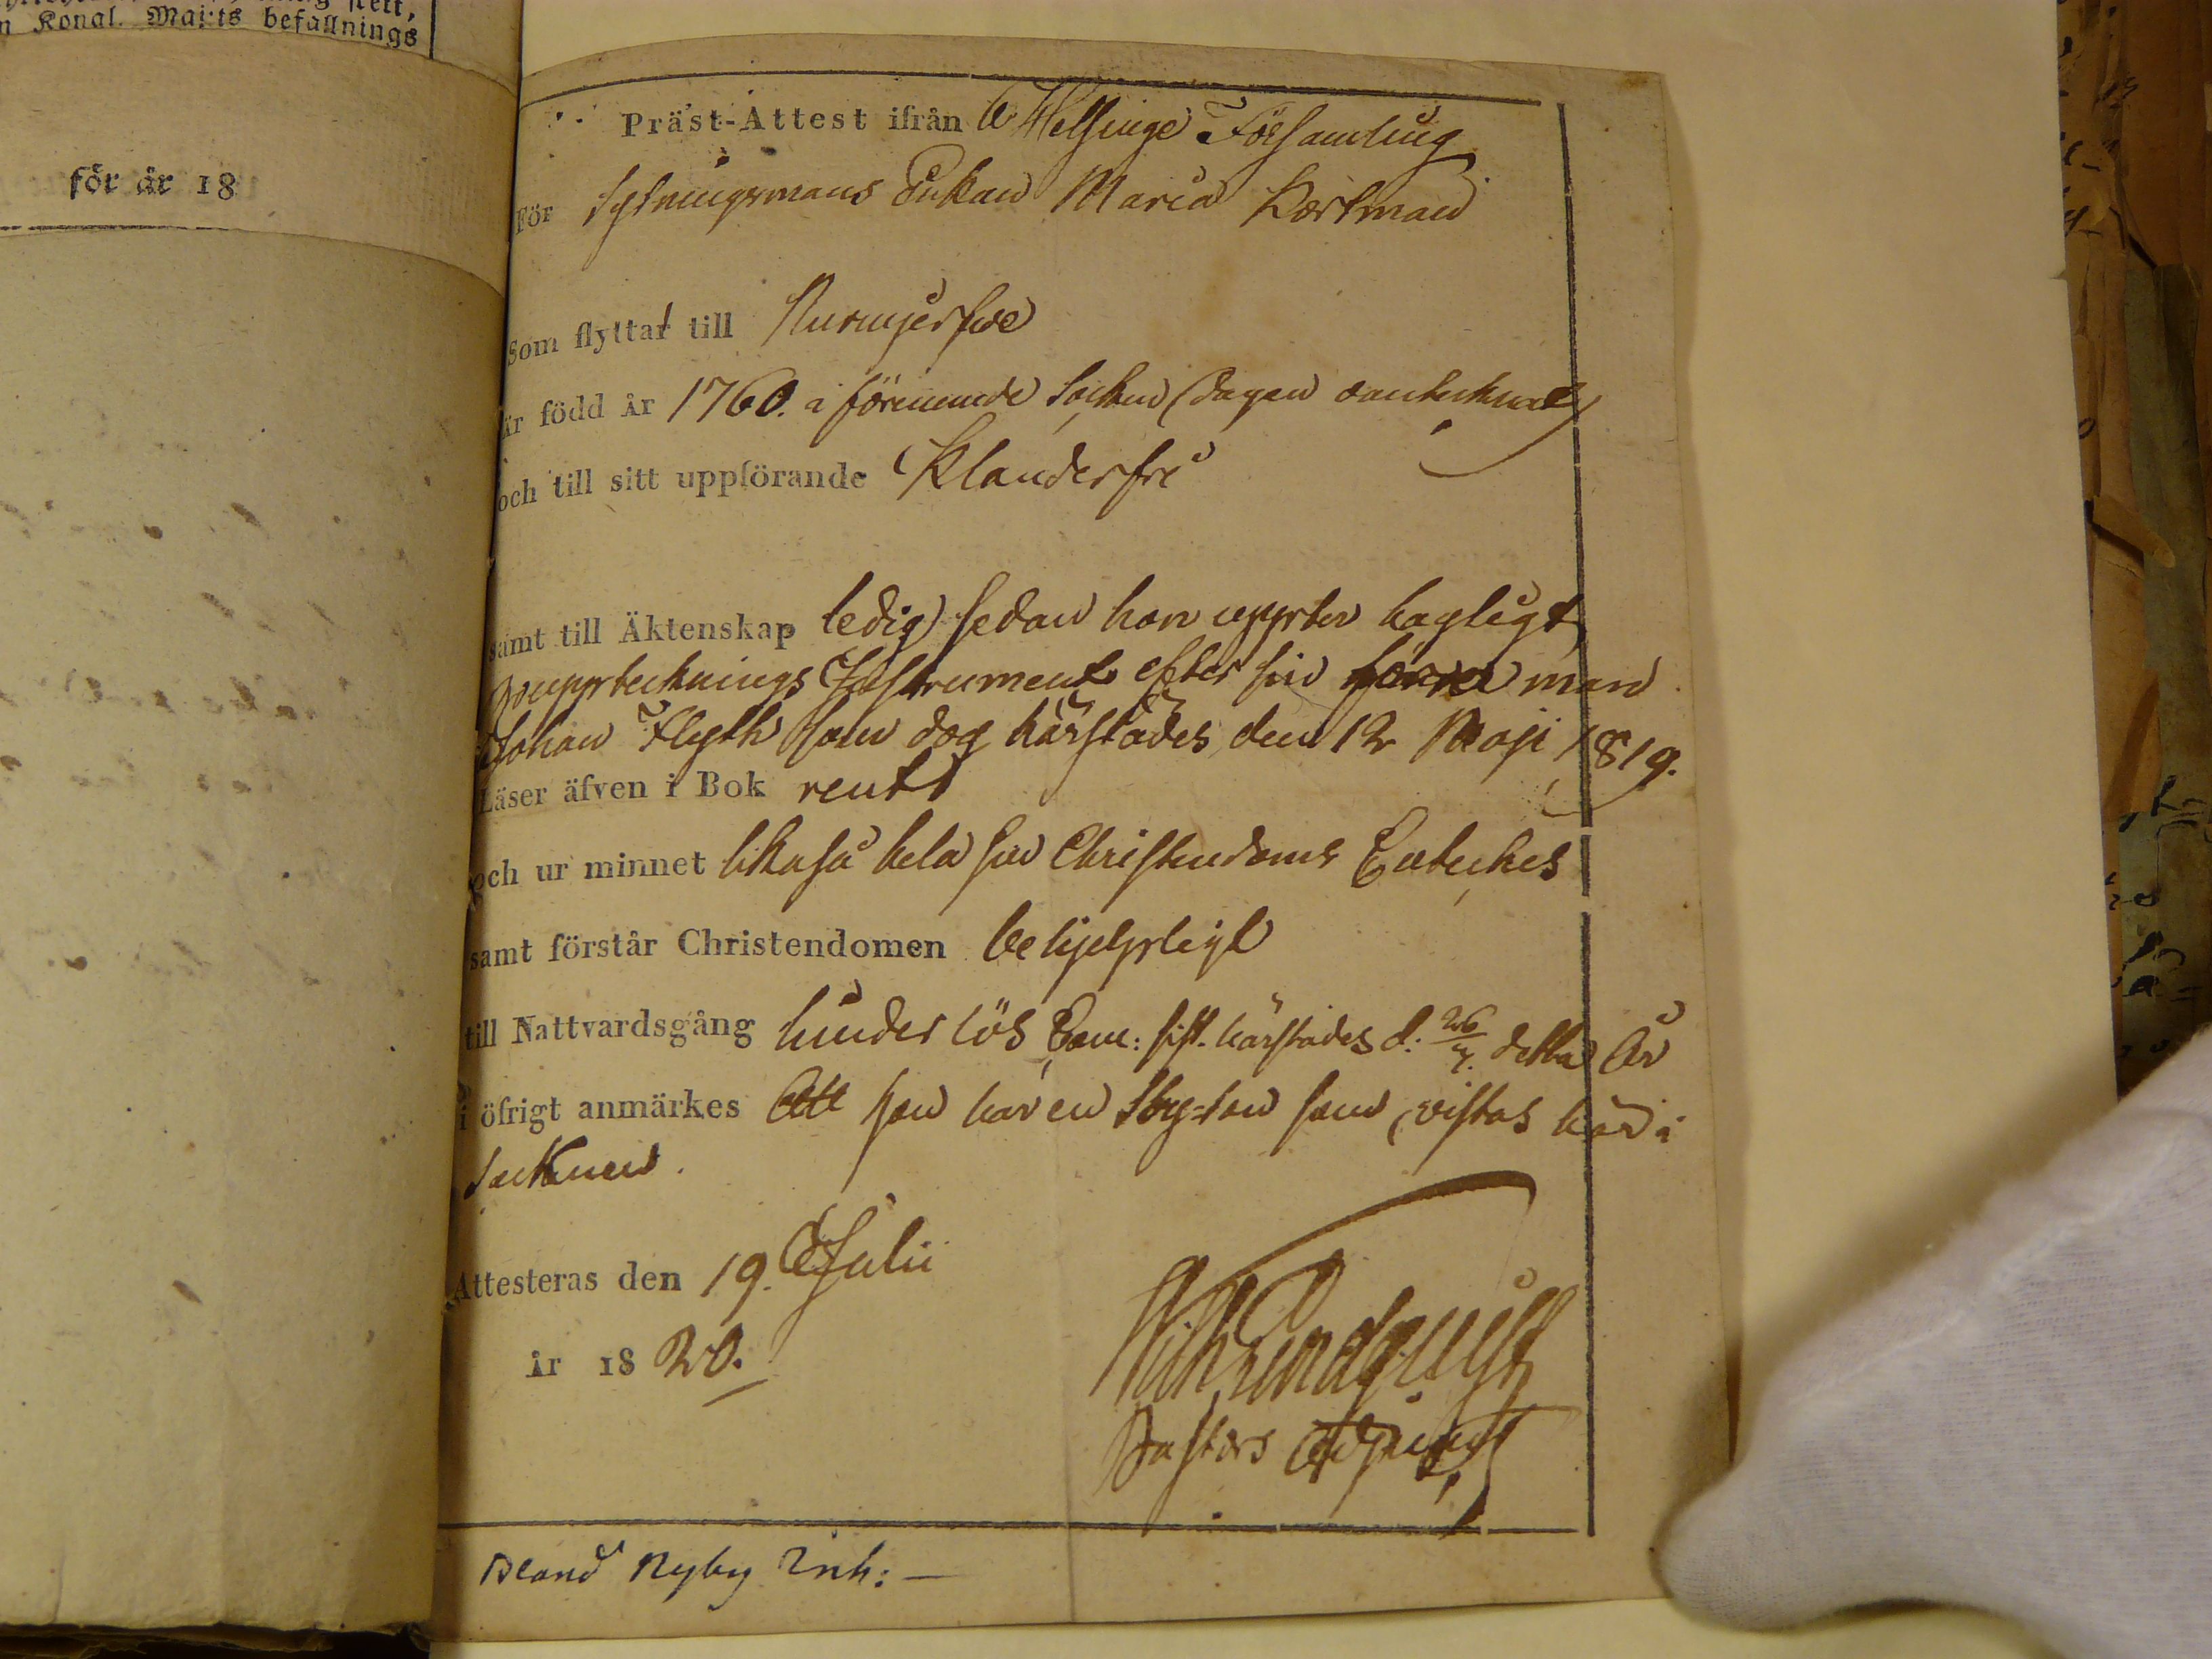 n Kongl. Maj:ts befallnings
för år 18
Präst-Attest ifrån Helsinge Församling
För sytningsmans Enkan Maria Hortman
Som flyttat till Nurmijerfwe
är född år 1760. i förenemnde Socken (dagen oantecknad)
och till sitt uppförande Klanderfri
samt till Äktenskap ledig sedan hon uppter lagligt
Boupptecknings Instrument efter sin förra man
Johan Flyth som dog härstädes den 12 Maji 1819.
Läser äfven i Bok rent
och ur minnet likaså hela sin Christendoms
samt förstår Christendomen behjelpligt
till Nattvardsgång hinderlös sist härstädes d: 26 detta År
i öfrigt anmärkes Att hon har en Styfson som vistas här i
Socknen.
Attesteras den 19. Julii
år 1820.
Pastors Adjunct
Bland Nyby Inh: —